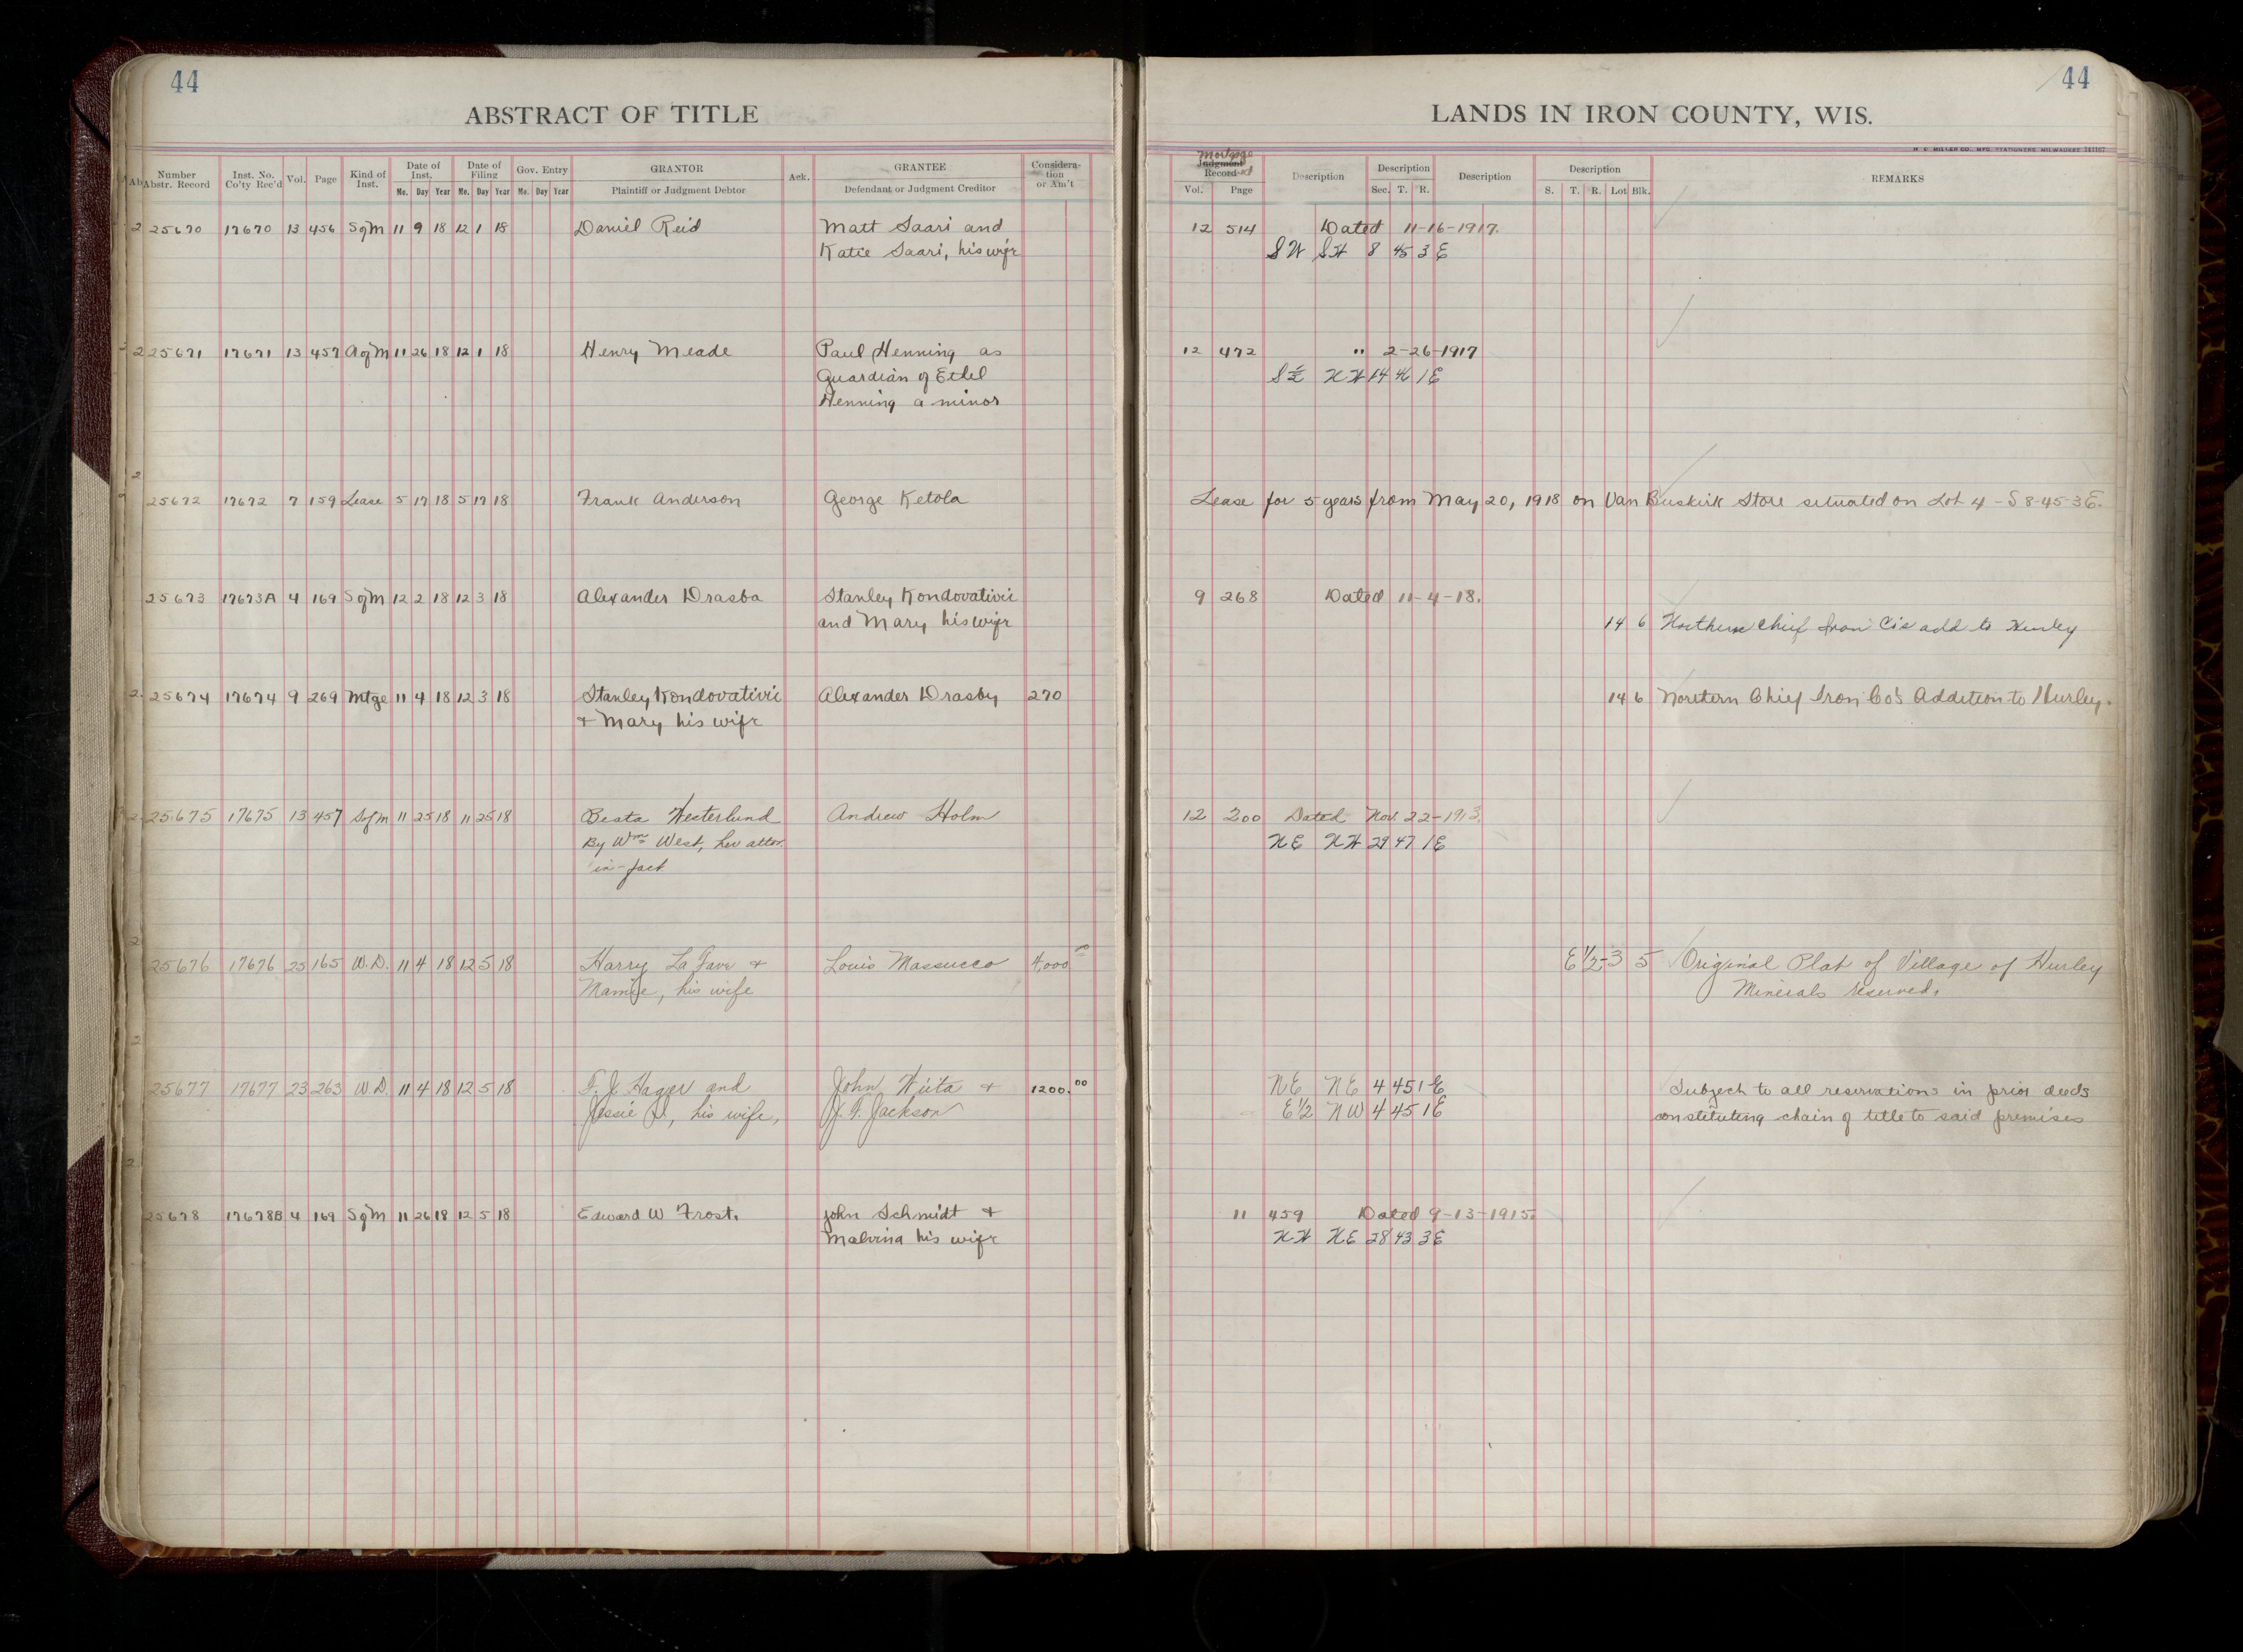 44
ABSTRACT OF TITLE
Number Abstr. Record Inst. No. Co'ty Rec'd Vol. Page Kind of Inst. Date of Inst. Mo. Day Year Date of Filing Mo. Day Year Gov. Entry Mo. Day Year GRANTOR Plaintiff or Judgment Debtor Ack. GRANTEE Defendant or Judgment Creditor Considera-tion or Am't
25670 17670 13 456 S of M 11 9 18 12 1 18 Daniel Reid Matt Saari and
Katie Saari, his wife
25671 17671 13 457 A of M 11 26 18 12 1 18 Henry Meade Paul Henning as
Guardian of Ethel
Henning a minor
25672 17672 7 159 Lease 5 17 18 5 17 18 Frank Anderson George Ketola
25673 17673A 4 169 S of M 12 2 18 12 3 18 Alexander Drasba Stanley Kondovativic
and Mary his wife
25674 17674 9 269 Mtge 11 4 18 12 3 18 Stanley Kondovativic Alexander Drasby 270
& Mary his wife
25675 17675 13 457 S of M 11 25 18 11 25 18 Beata Westerlund Andrew Holm
By Wm West, her attor.
in-fact
25676 17676 25 165 W.D. 11 4 18 12 5 18 Harry La Fave & Louis Massucco 4,000 00
Mamie, his wife
25677 17677 23 263 W.D. 11 4 18 12 5 18 F. J. Hager and John Wiita & 1200.00
Jessie , his wife, J. F. Jackson
25678 17678B 4 169 S of M 11 26 18 12 5 18 Edward W Frost. John Schmidt &
Malvina his wife
44
LANDS IN IRON COUNTY, WIS.
H. C. MILLER CO., MFG. STATIONERS, MILWAUKEE 141167
Mortgage
Judgment Record Vol. Page Description Description Sec. T. R. Description Description S. T. R. Lot Blk. REMARKS
12 514 Dated 11-16-1917.
SW SW 8 45 3 E
12 472 " 2-26-1917
S½ NW 14 46 1 E
Lease for 5 years from May 20, 1918 on Van Buskirk Store situated on Lot 4 - S 8-45-3E.
9 268 Dated 11-4-18.
14 6 Northern Chief Iron Co's add to Hurley
14 6 Northern Chief Iron Co's Addition to Hurley.
12 200 Dated Nov. 22-1913.
NE NW 29 47 1 E
E 1/2-3 5 Original Plat of Village of Hurley
Minerals reserved.
NE NE 4 45 1 E Subject to all reservations in prior deeds
E 1/2 NW 4 45 1 E constituting chain of title to said premises
11 459 Dated 9-13-1915.
NW NE 28 43 3 E